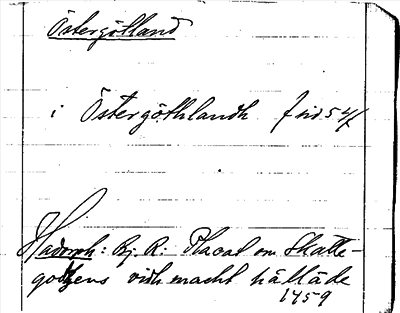 Östergötland
i Östergöthlandh
Hadorph: Bj. R: Placat om Skatte-
godzens vidh macht hållade
1759